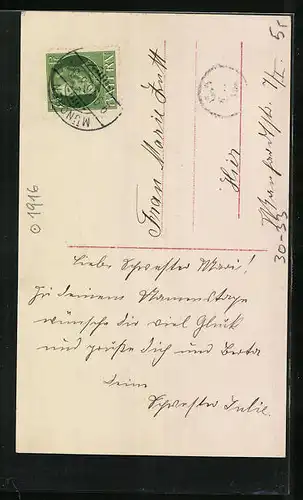 Liebe Schwester Mari!
Zu deinem Namenstage
wünsche dir viel Glück
und grüße dich und Berta
deine
Schwester Julie.
Frau Marie
Hier
I/II.
30-33
5,-
o 1916
BAYERN
MÜN